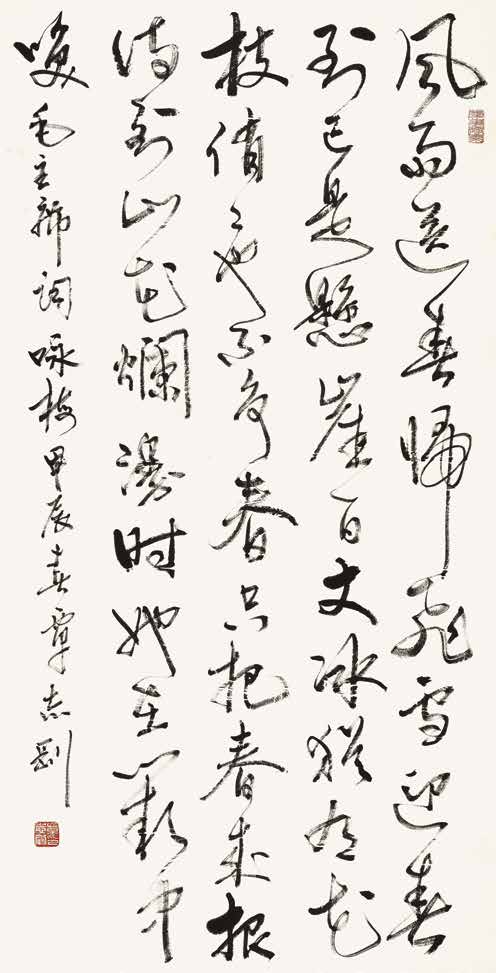 風雨送春歸飛雪迎春
到已是懸崖百丈冰猶有花
枝俏〻也不争春只把春来报
待到山花爛漫时她在叢中
咲 毛主席词咏梅甲辰春覃志剛